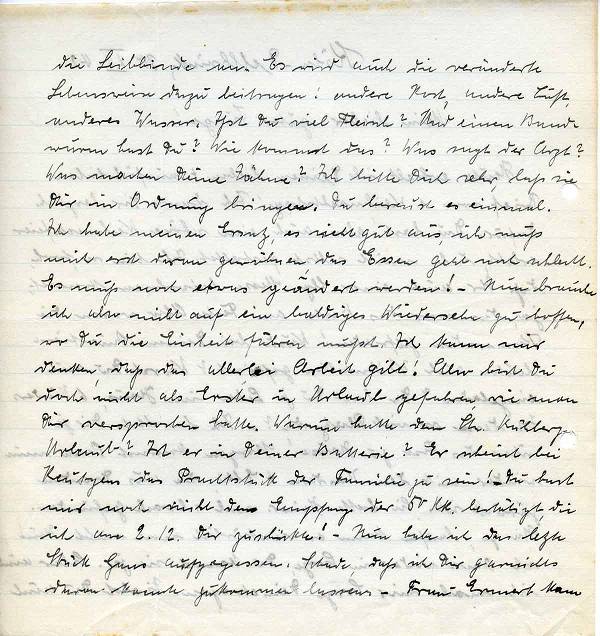 die Leibbinde um. Es wird auch die veränderte
Lebensweise dazu beitragen! andere Kost, andere Luft,
anderes Wasser. Ißt Du viel Fleisch? Und einen Band-
wurm hast Du? Wie kommt das? Was sagt der Arzt?
Was machen Deine Zähne? Ich bitte Dich sehr, laß sie
Dir in Ordnung bringen. Du bereust es einmal.
Ich habe meinen Ersatz, es sieht gut aus, ich muß
mich erst daran gewöhnen das Essen geht noch schlecht.
Es muß noch etwas geändert werden! - Nun brauche
ich also nicht auf ein baldiges Wiedersehn zu hoffen,
wo Du die Einheit führen mußt. Ich kann mir
denken, daß das allerlei Arbeit gibt! Also bist Du
doch nicht als Erster in Urlaub gefahren wie man
Dir versprochen hatte. Warum hatte den
Urlaub? Ist er in Deiner Batterie? Er scheint bei
das Prachtstück der Familie zu sein! - Du hast
mir noch nicht den Empfang der 50 RK. bestätigt die
ich am 2.12. Dir zuschickte! - Nun habe ich das letzte
Stück Gans aufgegessen. Schade daß ich Dir garnichts
davon konnte zukommen lassen - Frau kam